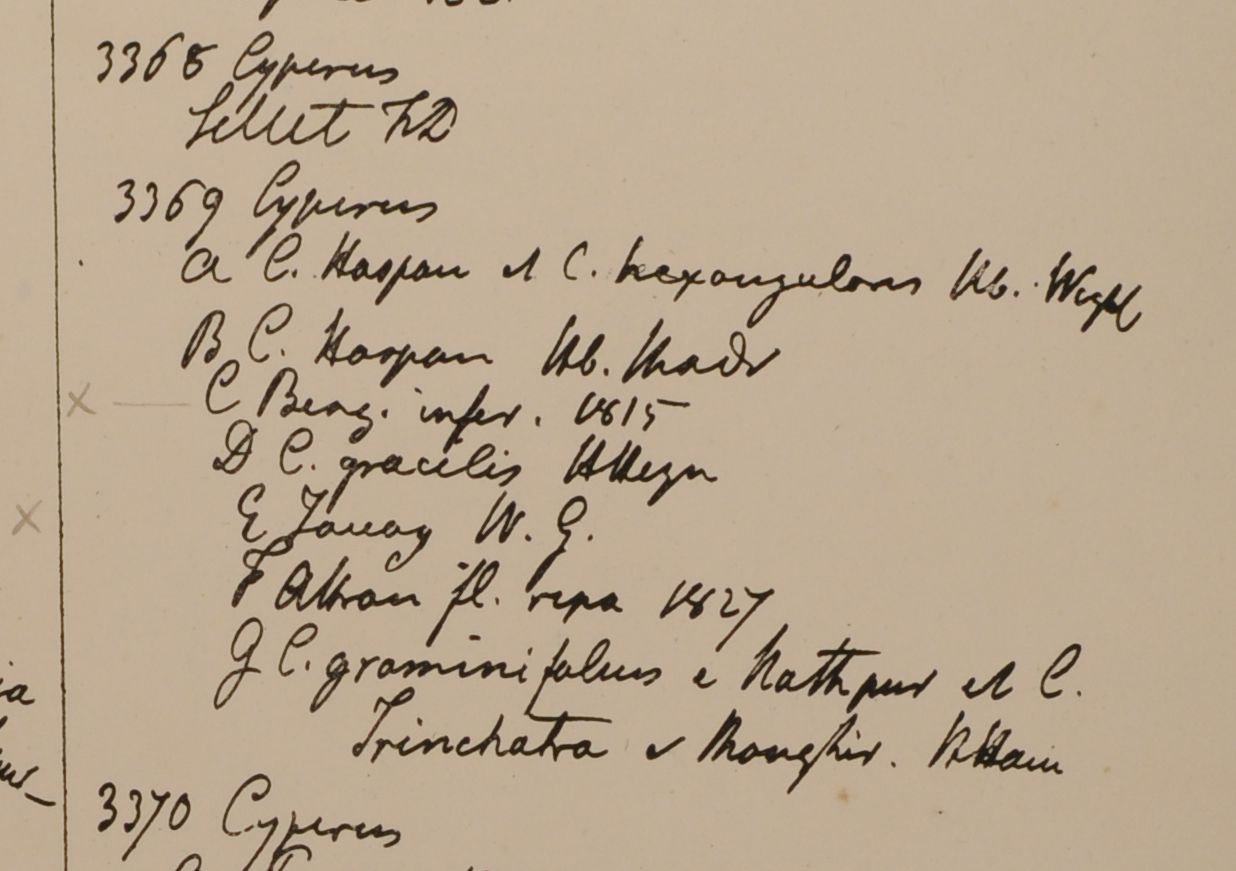 3368 Cyperus
Sillet FD
3369 Cyperus
a C. Haspan et C. hexangularis Hb. Wight
B C. Haspan Hb. Madr
C Beng. infer. 1815
D C. gracilis HHeyn
E Tavoy W. G.
F Attran fl. ripa 1827
G C. graminifolius e Nathpur et C.
Trinchatra e Monghir. BHam
3370 Cyperus